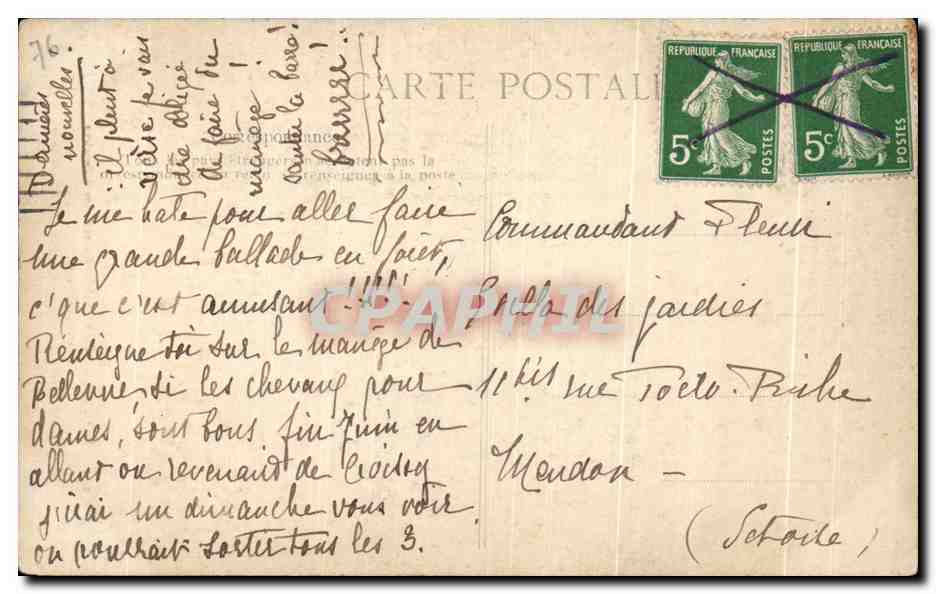 76
Dernières
nouvelles.
il pleut à
verse je vais
être obligée
de faire du
manège !
sauter la barre !
CARTE POSTALE
Correspondance
REPUBLIQUE FRANÇAISE
5c
POSTES
REPUBLIQUE FRANÇAISE
5c
POSTES
Je me hate pour aller faire
une grande ballade en forêt,
c'que c'est amusant !!!!!
Renseigne toi sur le manège de
Bellevue, si les chevaux pour
dames, sont bons, fin Juin en
allant ou revenant de Croissy
j'irai un dimanche vous voir
on pourrait sortir tous les 3.
Commandant Fleuri
Villa des Jardies
11 bis rue Porto-Riche
Meudon —
(Set Oise)
CPAPHIL